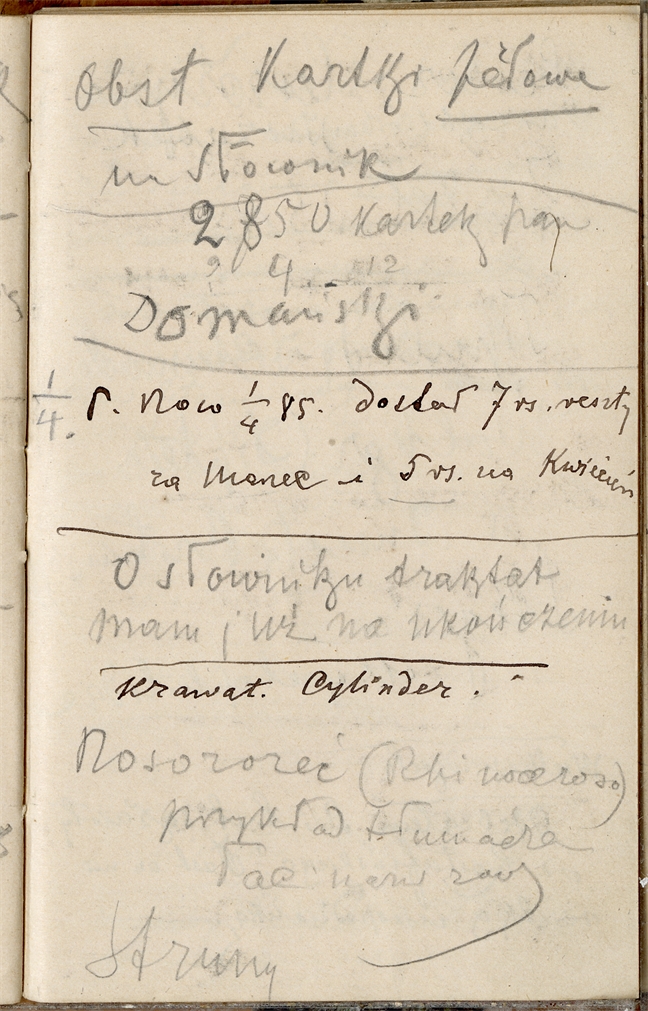 Obst. Kartki
na Słownik
2850 kartek pan
4 12
Domański
1/4. P. Now 1/4 85. Dostał 7 rs. reszty
za Marzec i 5 rs. na Kwiecień
O słowniku traktat
mam już na ukończeniu
Krawat. Cylinder.
Nosorożeć (Rhinoceros)
przykład tłumacza
nazw
Struny